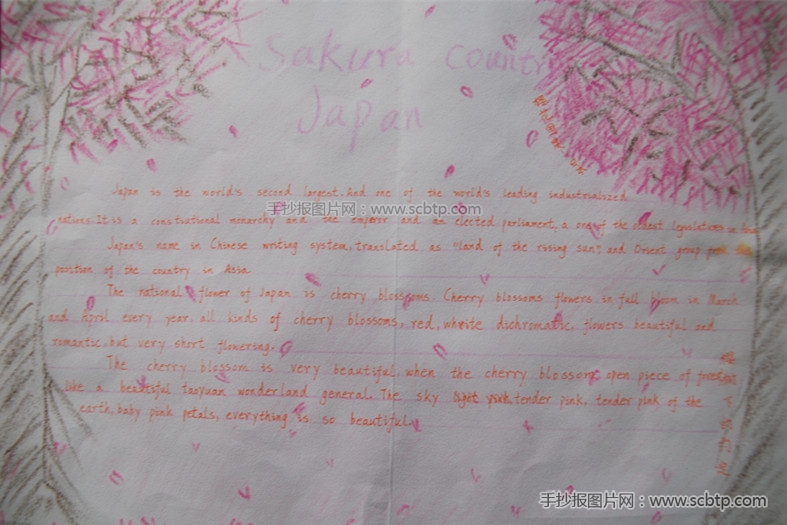 Sakura country
Japan
Japan is the world's second largest. And one of the world's leading industrialized
手抄报图片网：www.scbtp.com
nations. It is a constiutional monarchy and the emperor and an elected parliament, a one of the oldest legislatures in Asia
Japan's name in Chinese writing system, translated as "land of the rosing sun", and Orient group
position of the country in Asia
The national flower of Japan is cherry blossoms. Cherry blossoms flowers in full bloom in March
and April every year. all kinds of cherry blossoms, red, white dichromatic, flowers beautiful and
romantic. but very short flowering.
The cherry blossom is very beautiful. when the cherry blossoms open piece of forest
like a beautiful taoyuan wonderland general. The sky light pink, tender pink, tender pink of the
earth, baby pink petals, everything is so beautiful.
手抄报图片网：www.scbtp.com